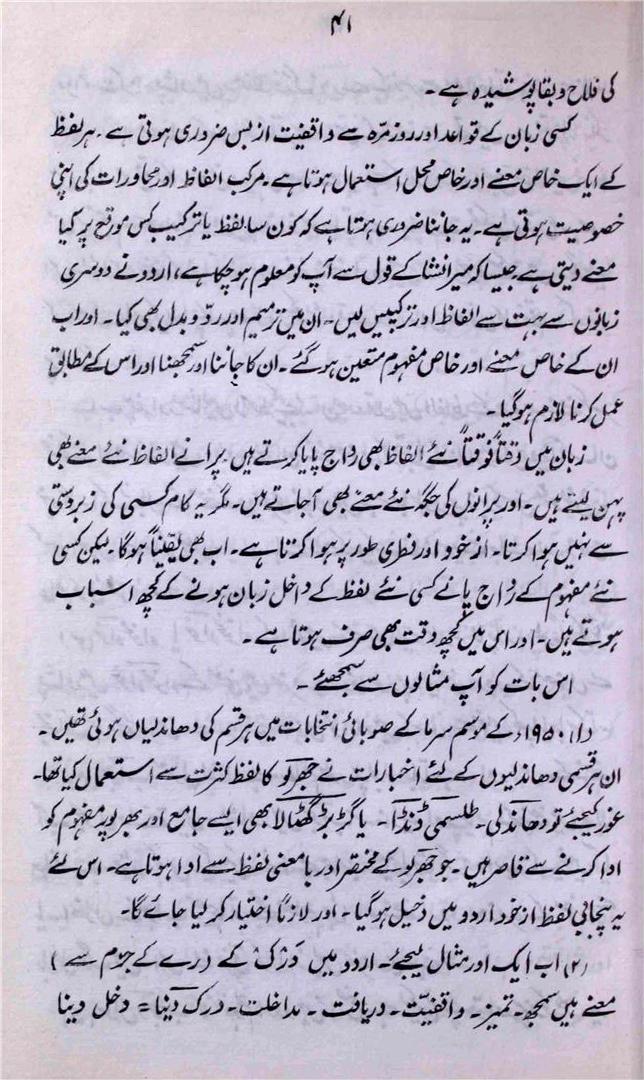 ۴۱
کی فلاح و بقا پوشیدہ ہے۔
کسی زبان کے قواعد اور روزمرّہ سے واقفیت از بس ضروری ہوتی ہے۔ ہر لفظ
کے ایک خاص معنے اور خاص محل استعمال ہوتا ہے۔ مرکب الفاظ اور محاورات کی اپنی
خصوصیت ہوتی ہے۔ یہ جاننا ضروری ہوتا ہے کہ کون سا لفظ یا ترکیب کس موقع پر کیا
معنے دیتی ہے۔ جیسا کہ میر انشا کے قول سے آپ کو معلوم ہو چکا ہے، اردو نے دوسری
زبانوں سے بہت سے الفاظ اور ترکیبیں لیں۔ ان میں ترمیم اور ردّ و بدل بھی کیا۔ اور اب
ان کے خاص معنے اور خاص مفہوم متعین ہو گئے۔ ان کا جاننا اور سمجھنا اور اس کے مطابق
عمل کرنا لازم ہو گیا۔
زبان میں وقتاً فوقتاً نئے الفاظ بھی رواج پایا کرتے ہیں۔ پرانے الفاظ نئے معنے بھی
پہن لیتے ہیں۔ اور پرانوں کی جگہ نئے معنے بھی آ جاتے ہیں۔ مگر یہ کام کسی کی زبردستی
سے نہیں ہوا کرتا۔ از خود اور فطری طور پر ہوا کرتا ہے۔ اب بھی یقیناً ہوگا۔ لیکن کسی
نئے مفہوم کے رواج پانے کسی نئے لفظ کے داخل زبان ہونے کے کچھ اسباب
ہوتے ہیں۔ اور اس میں کچھ وقت بھی صرف ہوتا ہے۔
اس بات کو آپ مثالوں سے سمجھئے۔
(۱) ۱۹۵۰ء کے موسم سرما کے صوبائی انتخابات میں ہر قسم کی دھاندلیاں ہوئی تھیں۔
ان ہر قسمی دھاندلیوں کے لئے اخبارات نے جھرلو کا لفظ کثرت سے استعمال کیا تھا۔
غور کیجئے تو دھاندلی۔ طلسمی ڈنڈا۔ یا گڑبڑ گھٹالا بھی ایسے جامع اور بھرپور مفہوم کو
ادا کرنے سے قاصر ہیں۔ جو جھرلو کے مختصر اور بامعنی لفظ سے ادا ہوتا ہے۔ اس لئے
یہ پنجابی لفظ از خود اردو میں دخیل ہو گیا۔ اور لازماً اختیار کر لیا جائے گا۔
(۲) اب ایک اور مثال لیجئے۔ اردو میں دَرْک کے (رے کے جزم سے)
معنے ہیں سمجھ۔ تمیز۔ واقفیّت۔ دریافت۔ مداخلت۔ درک دینا = دخل دینا